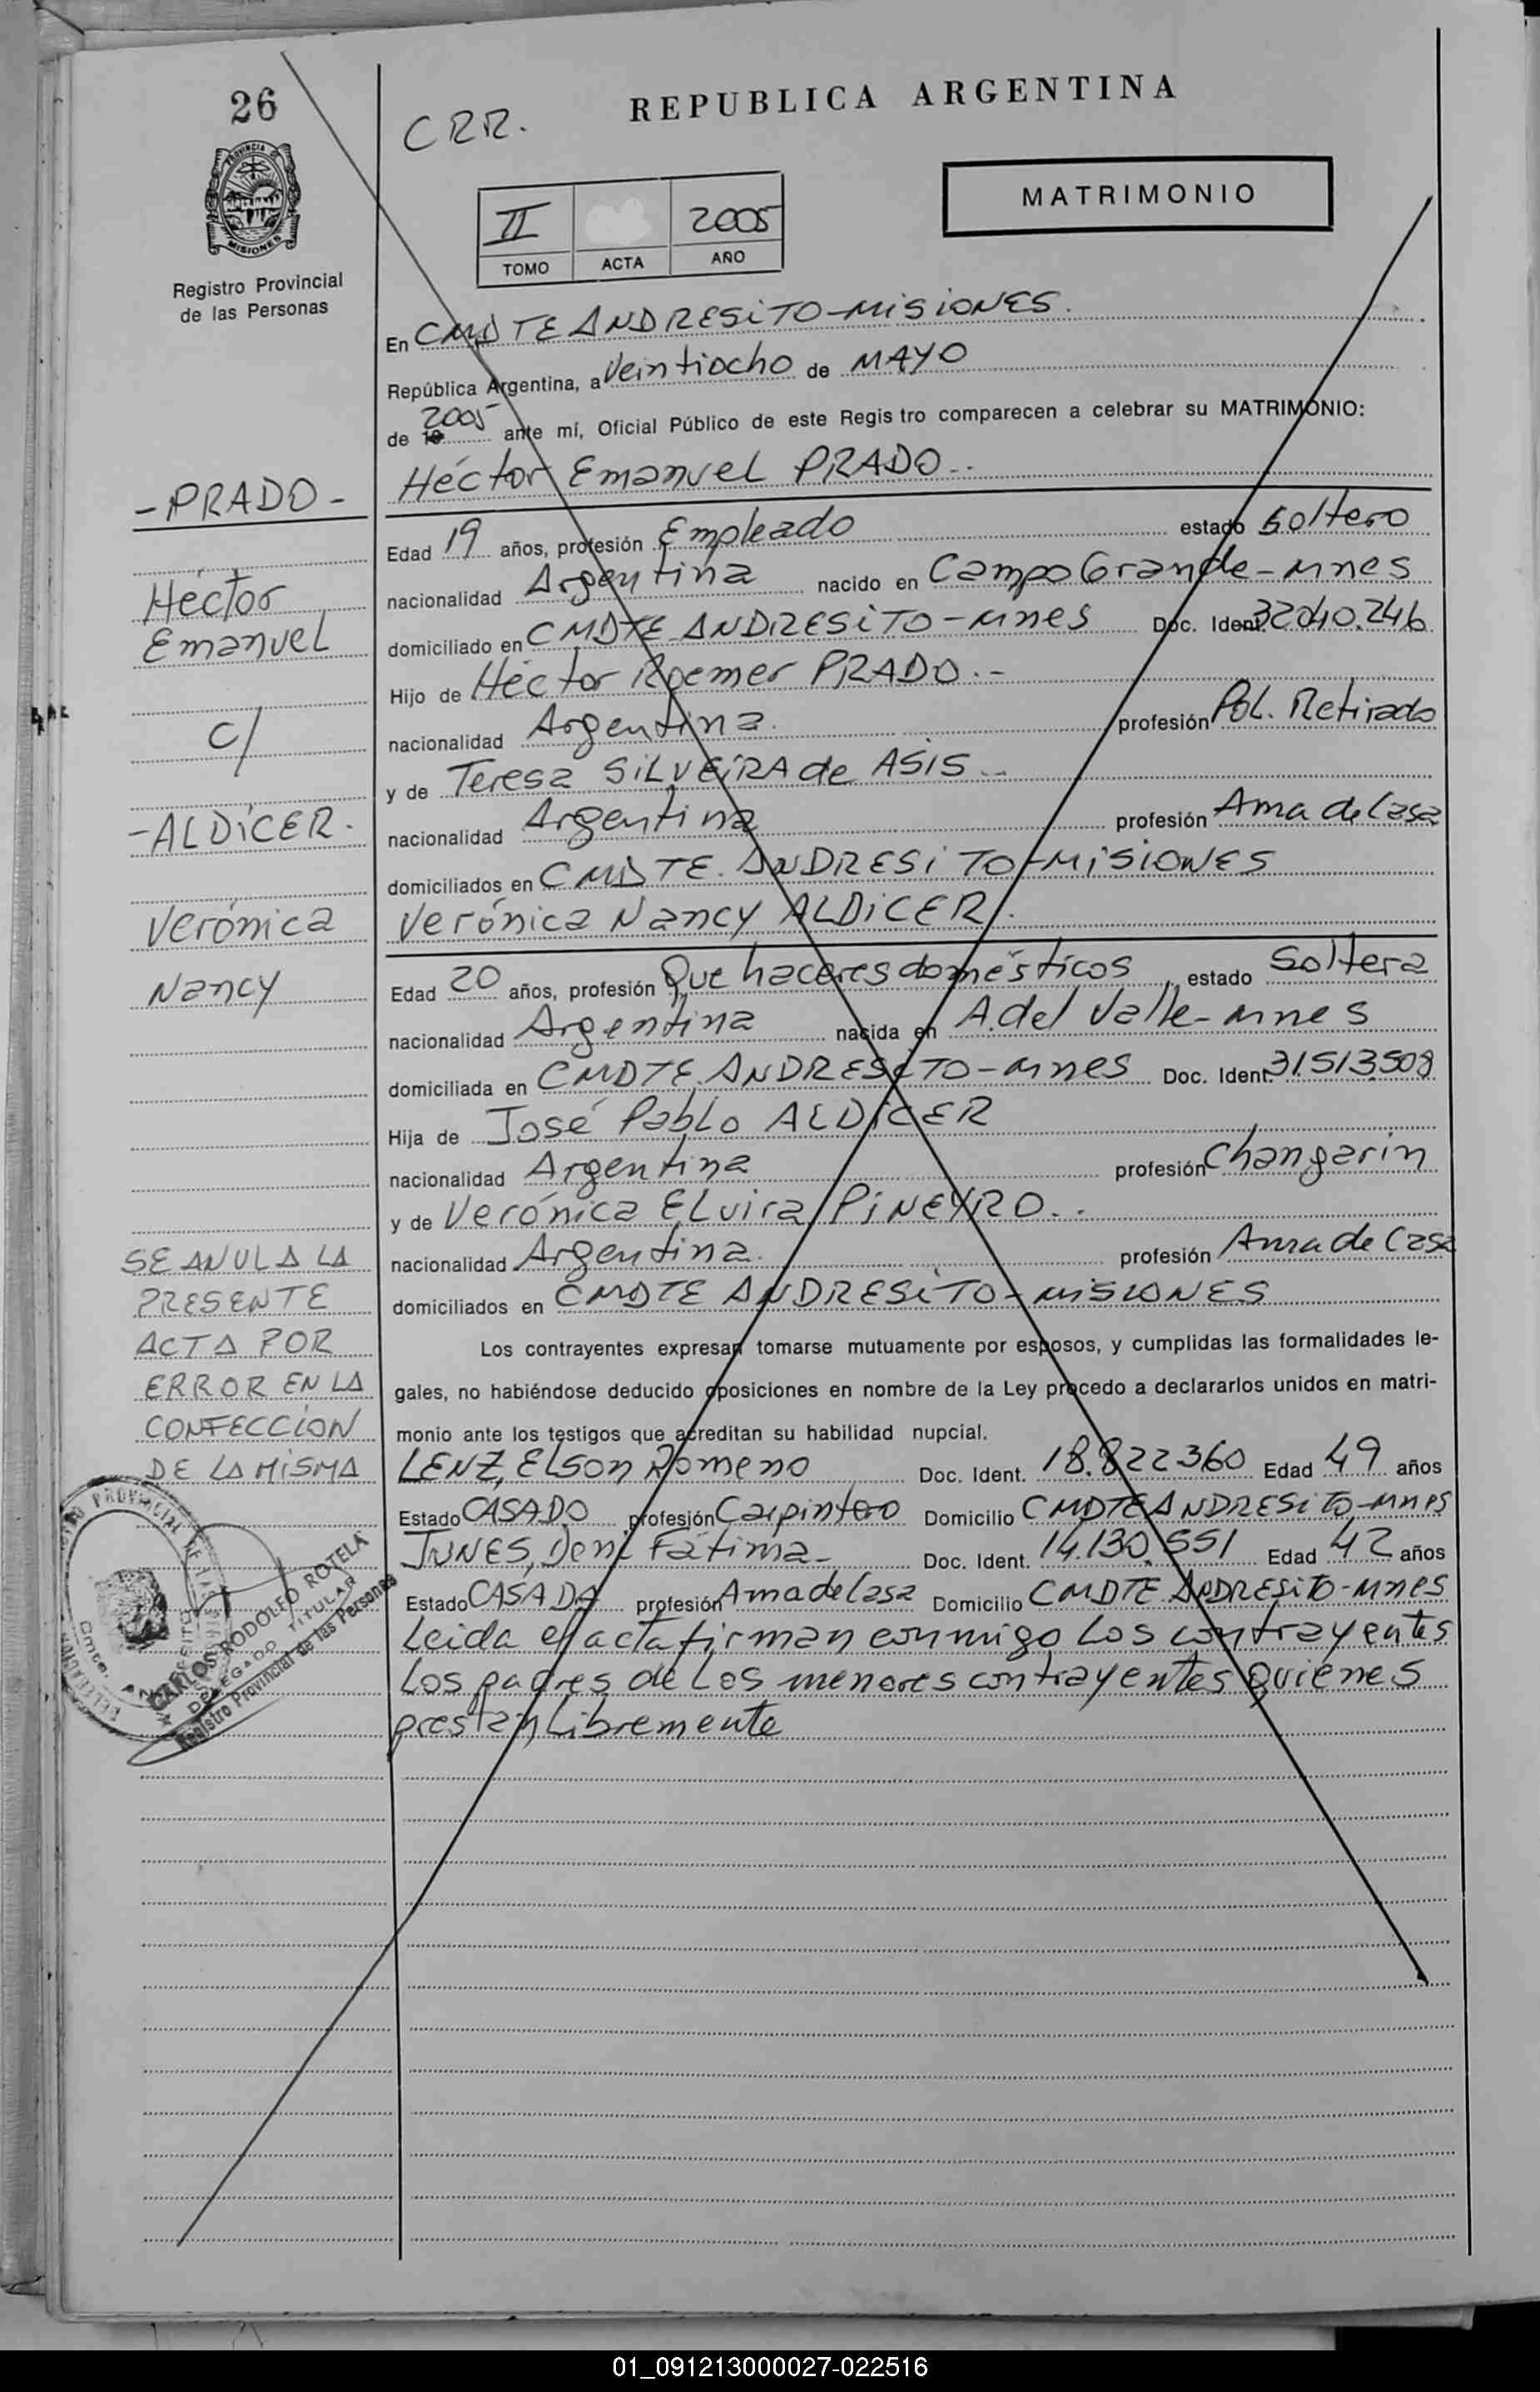 26
PROVINCIA
MISIONES
Registro Provincial
de las Personas
CRR.
REPUBLICA ARGENTINA
MATRIMONIO
II 2005
TOMO ACTA AÑO
En CMDTE ANDRESiTO-MiSiONES.
República Argentina, a Veintiocho de MAYO
de 19 2005 ante mí, Oficial Público de este Regis tro comparecen a celebrar su MATRIMONIO:
Héctor Emanuel PRADO..
Edad 19 años, profesión Empleado estado Soltero
nacionalidad Argentina nacido en Campo Grande-Mnes
domiciliado en CMDTE ANDRESiTO-Mnes Doc. Ident. 32.040.246
Hijo de Héctor Roemer PRADO.-
nacionalidad Argentina. profesión Pol. Retirado
y de Teresa SiLVEiRA de ASiS..
nacionalidad Argentina profesión Ama de Casa
domiciliados en CMDTE. ANDRESiTO-MiSiONES
Verónica Nancy ALDiCER.
Edad 20 años, profesión Que haceres domésticos estado Soltera
nacionalidad Argentina nacida en A. del Valle-Mnes
domiciliada en CMDTE. ANDRESiTO-Mnes Doc. Ident. 31.513.508
Hija de José Pablo ALDiCER
nacionalidad Argentina profesión Changarin
y de Verónica ELvira PiNEYRO..
nacionalidad Argentina. profesión Ama de Casa
domiciliados en CMDTE ANDRESiTO-MiSiONES
Los contrayentes expresan tomarse mutuamente por esposos, y cumplidas las formalidades le-
gales, no habiéndose deducido oposiciones en nombre de la Ley procedo a declararlos unidos en matri-
monio ante los testigos que acreditan su habilidad nupcial.
LENZ, ELSON Romeno Doc. Ident. 18.822.360 Edad 49 años
Estado CASADO profesión Carpintero Domicilio CMDTE ANDRESiTO-Mnes
JUNES, Deni Fátima- Doc. Ident. 14.130.551 Edad 42 años
Estado CASADA profesión Ama de Casa Domicilio CMDTE ANDRESiTO-Mnes
Leida el acta firman conmigo Los contrayentes
Los padres de Los menores contrayentes quienes
prestan Libremente
-PRADO-
Héctor
Emanuel
c/
-ALDiCER.
Verónica
Nancy
SE ANULA LA
PRESENTE
ACTA POR
ERROR EN LA
CONFECCiON
DE LA MiSMA
CARLOS RODOLFO ROTELA
DELEGADO TITULAR
Registro Provincial de las Personas
01_091213000027-022516